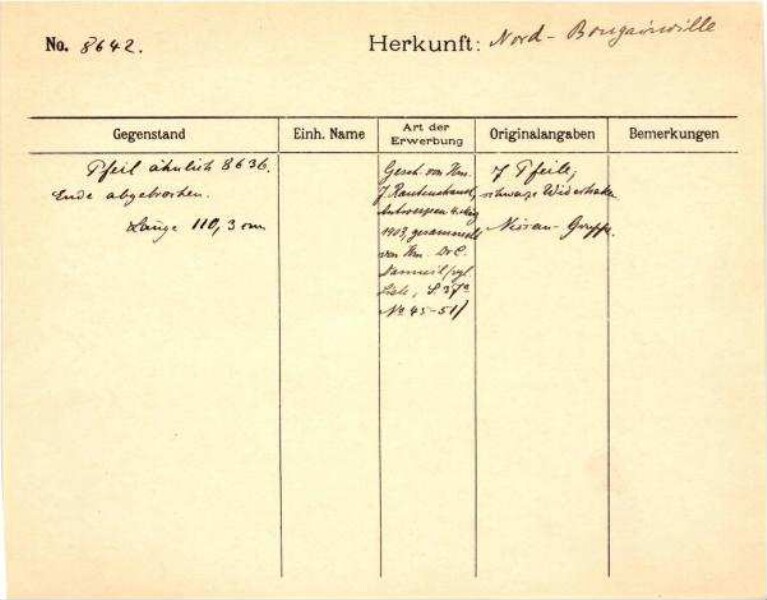 No. 8642.
Herkunft: Nord-Bougainville
Gegenstand
Einh. Name
Art der Erwerbung
Originalangaben
Bemerkungen
Pfeil ähnlich 8636.
Ende abgebrochen.
Länge 110,3 cm
Gesch. von Hrn.
J. Rautenstrauch,
Antwerpen
1903, gesammelt
von Hrn. Dr C.
/vgl.
Liste, S. 37a
No 45-51/
7 Pfeile,
schwarze Widerhaken
Nissan-Gruppe.